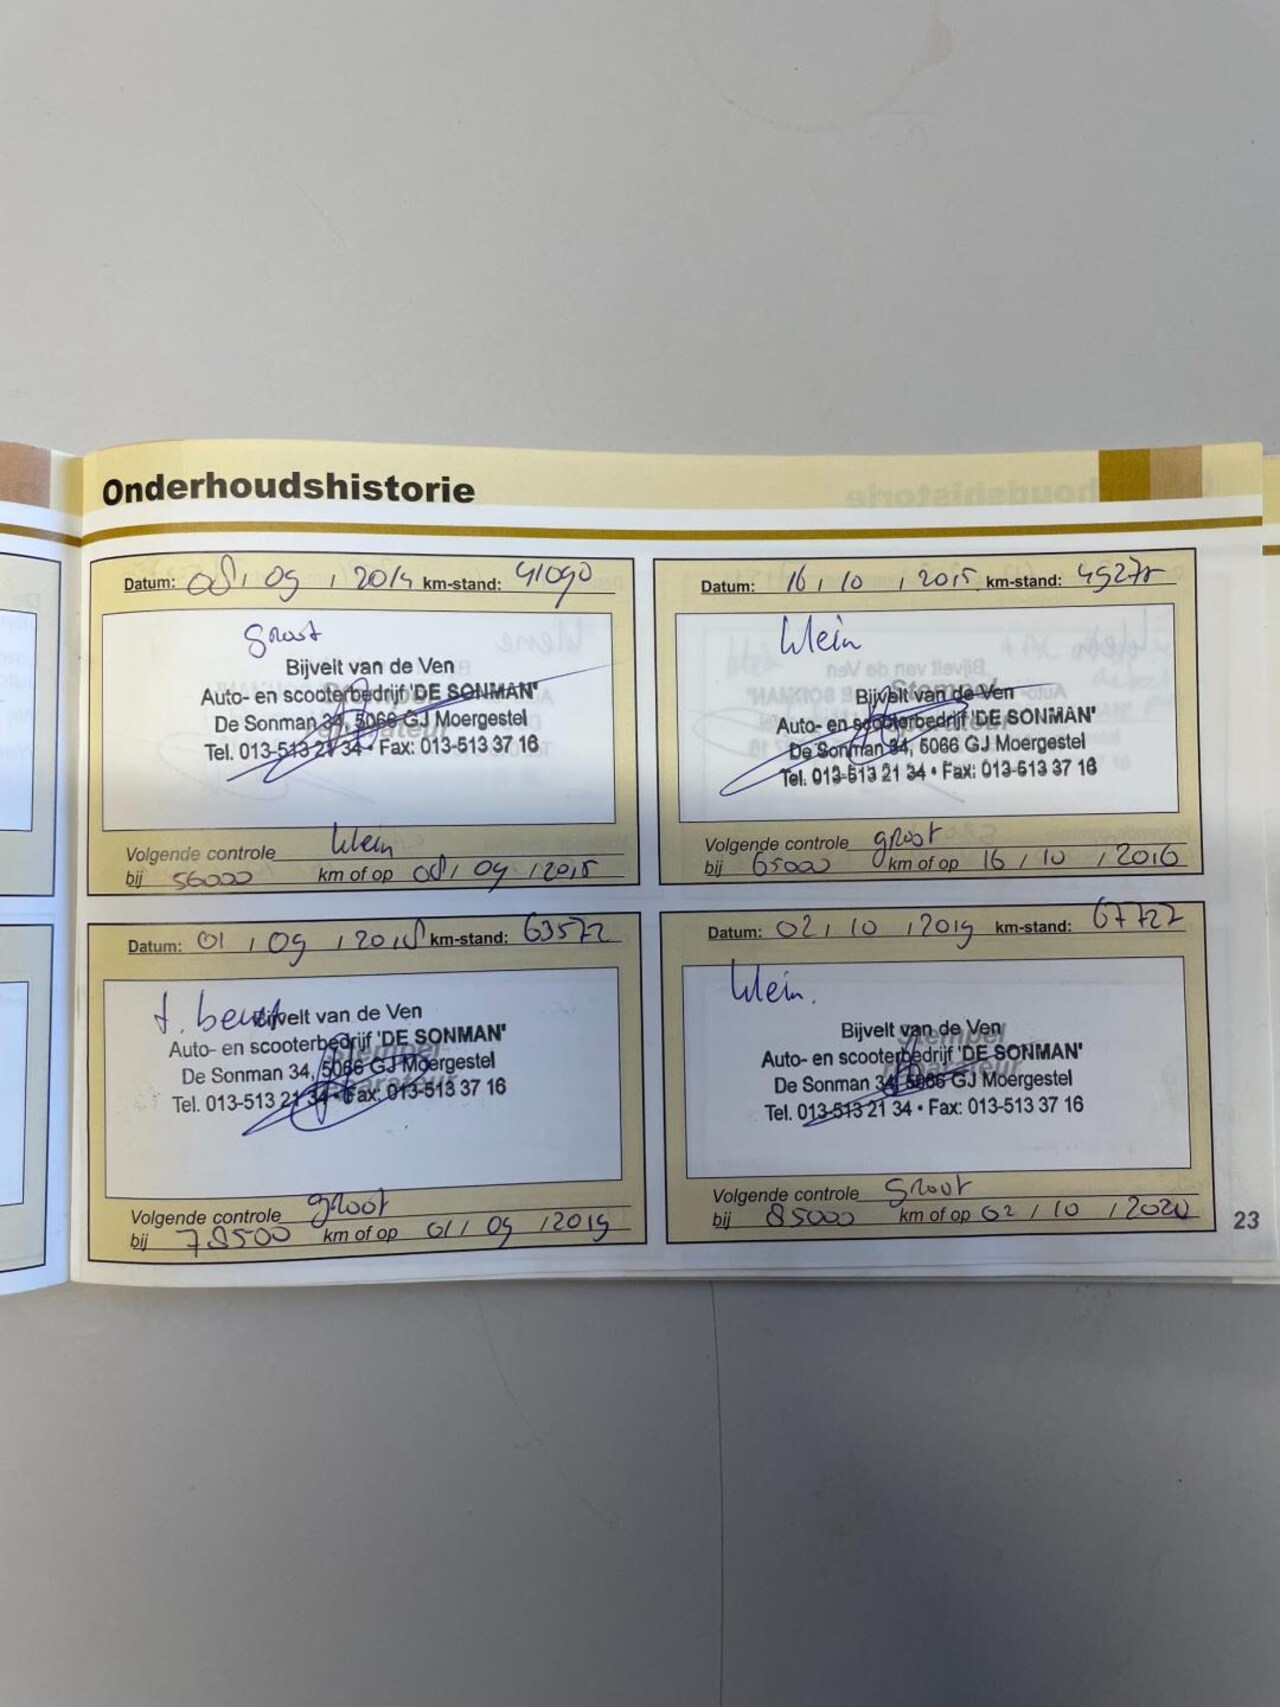 Onderhoudshistorie
Datum: 08 / 09 / 2014 km-stand: 41090
groot
Bijvelt van de Ven
Auto- en scooterbedrijf 'DE SONMAN'
De Sonman 34, 5066 GJ Moergestel
Tel. 013-513 21 34 • Fax: 013-513 37 16
Volgende controle klein
bij 56000 km of op 08 / 09 / 2015
Datum: 16 / 10 / 2015 km-stand:
klein
Stempel
Bijvelt van de Ven
Auto- en scooterbedrijf 'DE SONMAN'
De Sonman 34, 5066 GJ Moergestel
Tel. 013-513 21 34 • Fax: 013-513 37 16
Volgende controle groot
bij 65000 km of op 16 / 10 / 2016
Datum: 01 / 09 / 2018 km-stand: 63572
Bijvelt van de Ven
Auto- en scooterbedrijf 'DE SONMAN'
Stempel
De Sonman 34, 5066 GJ Moergestel
reparateur
Tel. 013-513 21 34 • Fax: 013-513 37 16
Volgende controle groot
bij 78500 km of op 01 / 09 / 2019
Datum: 02 / 10 / 2019 km-stand: 67727
klein.
Bijvelt van de Ven
Stempel
Auto- en scooterbedrijf 'DE SONMAN'
reparateur
De Sonman 34, 5066 GJ Moergestel
Tel. 013-513 21 34 • Fax: 013-513 37 16
Volgende controle groot
bij 85000 km of op 02 / 10 / 2020
23